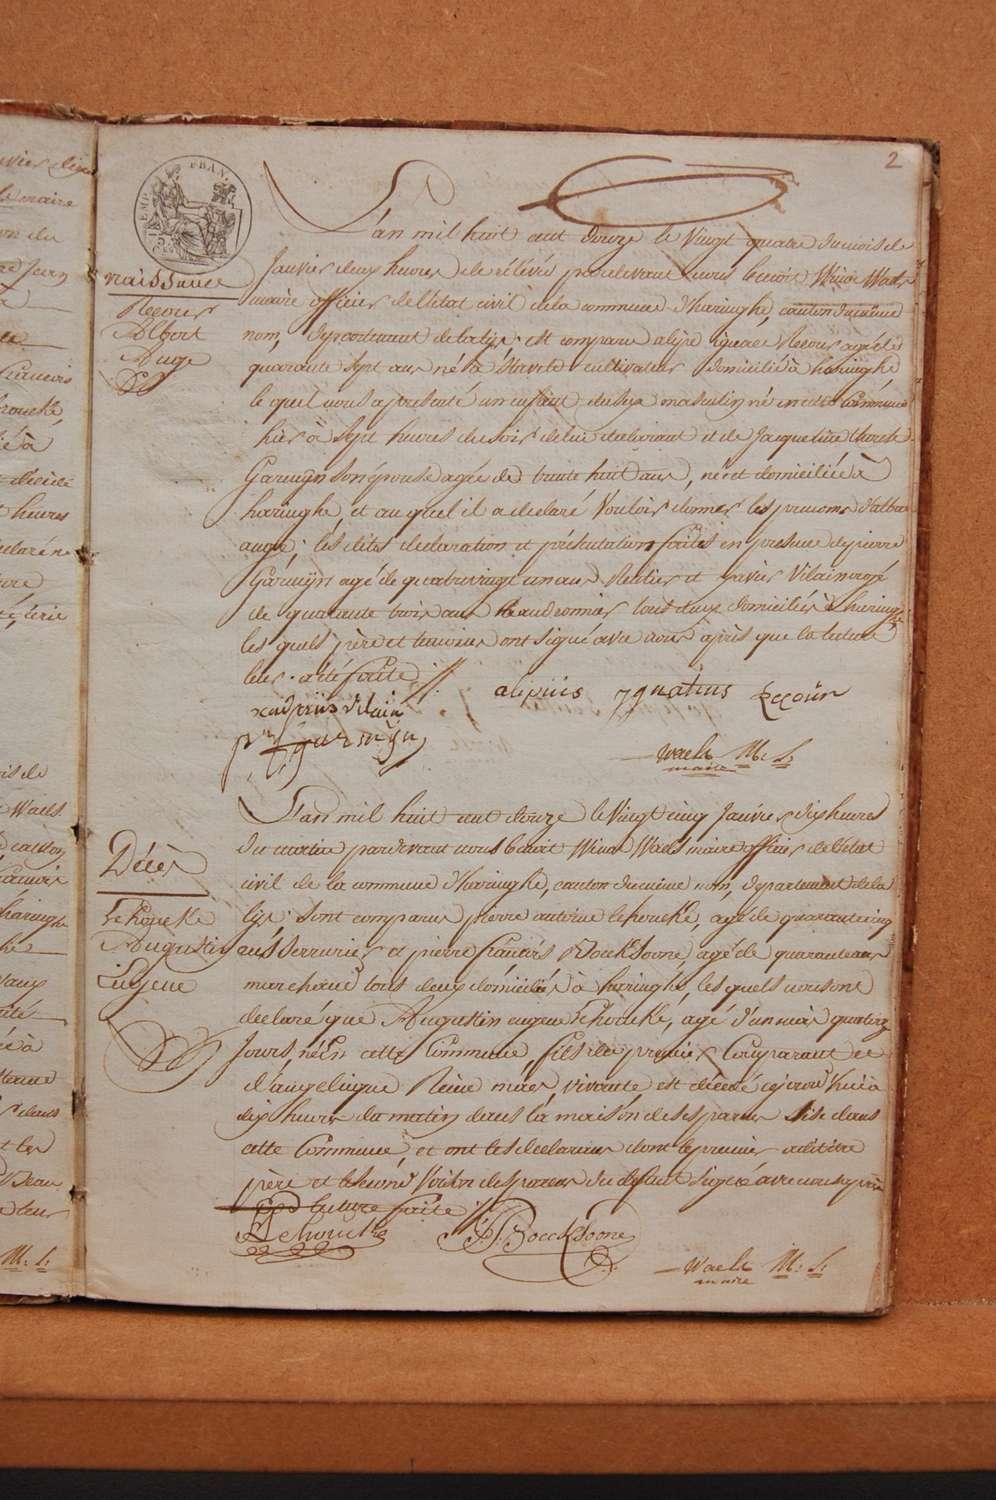 2
EMP. FRAN.
naissance
Recour
Albert
Auge
L'an mil huit cent douze le vingt quatre du mois de
Janvier deux heures de rélévé pardevant nous benoit Winoc Waels
maire officier de l'état civil de la commune d'haringhe, canton du même
nom, departement de la lijs; est comparu alipe ignace Recour agé de
quarante sept ans né à cultivateur domicilié à haringhe
le quel nous a presenté un enfant du sex masculin né en cette Commune
hier à sept heures du soir de lui declarant et de Jacqueline
Garmÿn son épouse agée de trente huit ans, née et domiciliée à
haringhe, et au quel il a declaré vouloir donner les prenoms d'albert
auge; les dites declaration et présentation faites en presence de pierre
Garmÿn agé de quatrevingt un ans Rentier et Xavier Vilain agé
de quarante trois ans tous deux domiciliés à haringhe
les quels père et temoins ont signé avec nous après que lecture
leur a été faite
alipius ijgnatius Recoür
xaverius vilain
garmÿn
Waels M: S:
maire
Décès
Lehoucke
Augustin
Eugene
L'an mil huit cent douze le vingt cinq Janvier dix heures
du matin pardevant nous benoit Winoc Waels maire officier de l'état
civil de la commune d'haringhe, canton du même nom, departement de la
lijs; sont comparus pierre antoine lehoucke, agé de quarante cinq
ans Serrurier et pierre francois BoeckSoone, agé de quarante ans
marchand tous deux domiciliés à haringhe, les quels nous ont
declaré que Augustin eugene Lehoucke, agé d'un mois quatorze
Jours, né en cette Commune, fils de premier Comparant et
d'angelique Reine vivante est décédé
dix heures du matin dans la maison de ses parens sise dans
cette Commune, et ont les declarans dont le premier a dit être
père et le second Voisin des parens du defunt Signé avec nous après
lecture faite
Lehoucke
BoeckSoone
Waels M: S:
maire